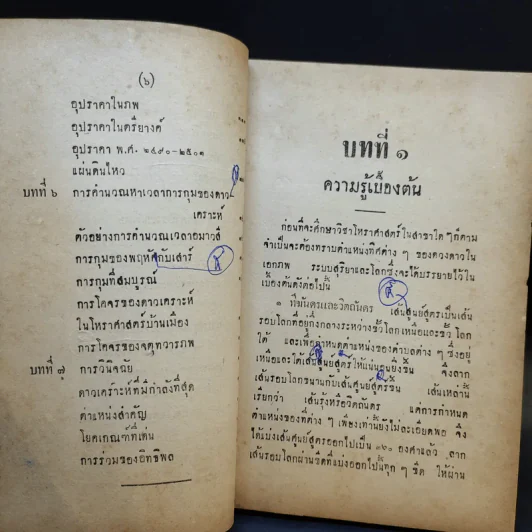 (๖)
อุปราคาในภพ
อุปราคาในตรียางค์
อุปราคา พ.ศ. ๒๔๙๐-๒๕๐๓
แผ่นดินไหว
บทที่ ๖ การคำนวณหาเวลาการกุมของดาว
เคราะห์
ตัวอย่างการคำนวณเวลาอมาวสี
การกุมของพฤหัศกับเสาร์
การกุมที่สมบูรณ์
การโคจรของดาวเคราะห์
ในโหราศาสตร์บ้านเมือง
การโคจรของจตุทวารภพ
บทที่ ๗ การวินิจฉัย
ดาวเคราะห์ที่มีกำลังที่สุด
ตำแหน่งสำคัญ
โยคเกณฑ์ที่เด่น
การร่วมของอิทธิพล
บทที่ ๑
ความรู้เบื้องต้น
ก่อนที่จะศึกษาวิชาโหราศาสตร์ในสาขาใด ๆ ก็ตาม
จำเป็นจะต้องทราบตำแหน่งทิศต่าง ๆ ของดวงดาวใน
เอกภพ ระบบสุริยและโลกซึ่งจะได้บรรยายไว้ใน
เบื้องต้นดังต่อไปนี้
๑ ทีฆันตรและวิตถันตร เส้นศูนย์สูตรเป็นเส้น
รอบโลกที่อยู่กึ่งกลางระหว่างขั้วโลกเหนือและขั้วโลก
ใต้ และเพื่อกำหนดตำแหน่งของตำบลต่าง ๆ ซึ่งอยู่
เหนือและใต้เส้นศูนย์สูตรให้แน่นอนยิ่งขึ้น จึงลาก
เส้นรอบโลกขนานกับเส้นศูนย์สูตรขึ้น เส้นเหล่านี้
เรียกว่า เส้นรุ้งหรือวิตถันตร แต่การกำหนด
ตำแหน่งของที่ต่าง ๆ เพียงเท่านี้ยังไม่ละเอียดพอ จึง
ได้แบ่งเส้นศูนย์สูตรออกไปเป็น ๓๖๐ องศาแล้ว ลาก
เส้นรอบโลกผ่านขีดที่แบ่งออกไปนั้นทุก ๆ ขีด ให้ผ่าน